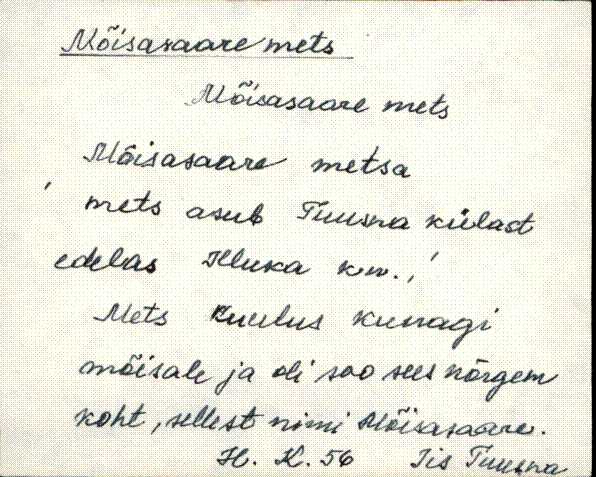 Mõisasaare mets
Mõisasaare mets
Mõisasaare metsa
mets asub Tuusna külast
edelas Illuka kn.,
Mets kuulus kunagi
mõisale ja oli soo sees kõrgem
koht, sellest nimi Mõisasaare.
H. K. 56 Iis Tuusna